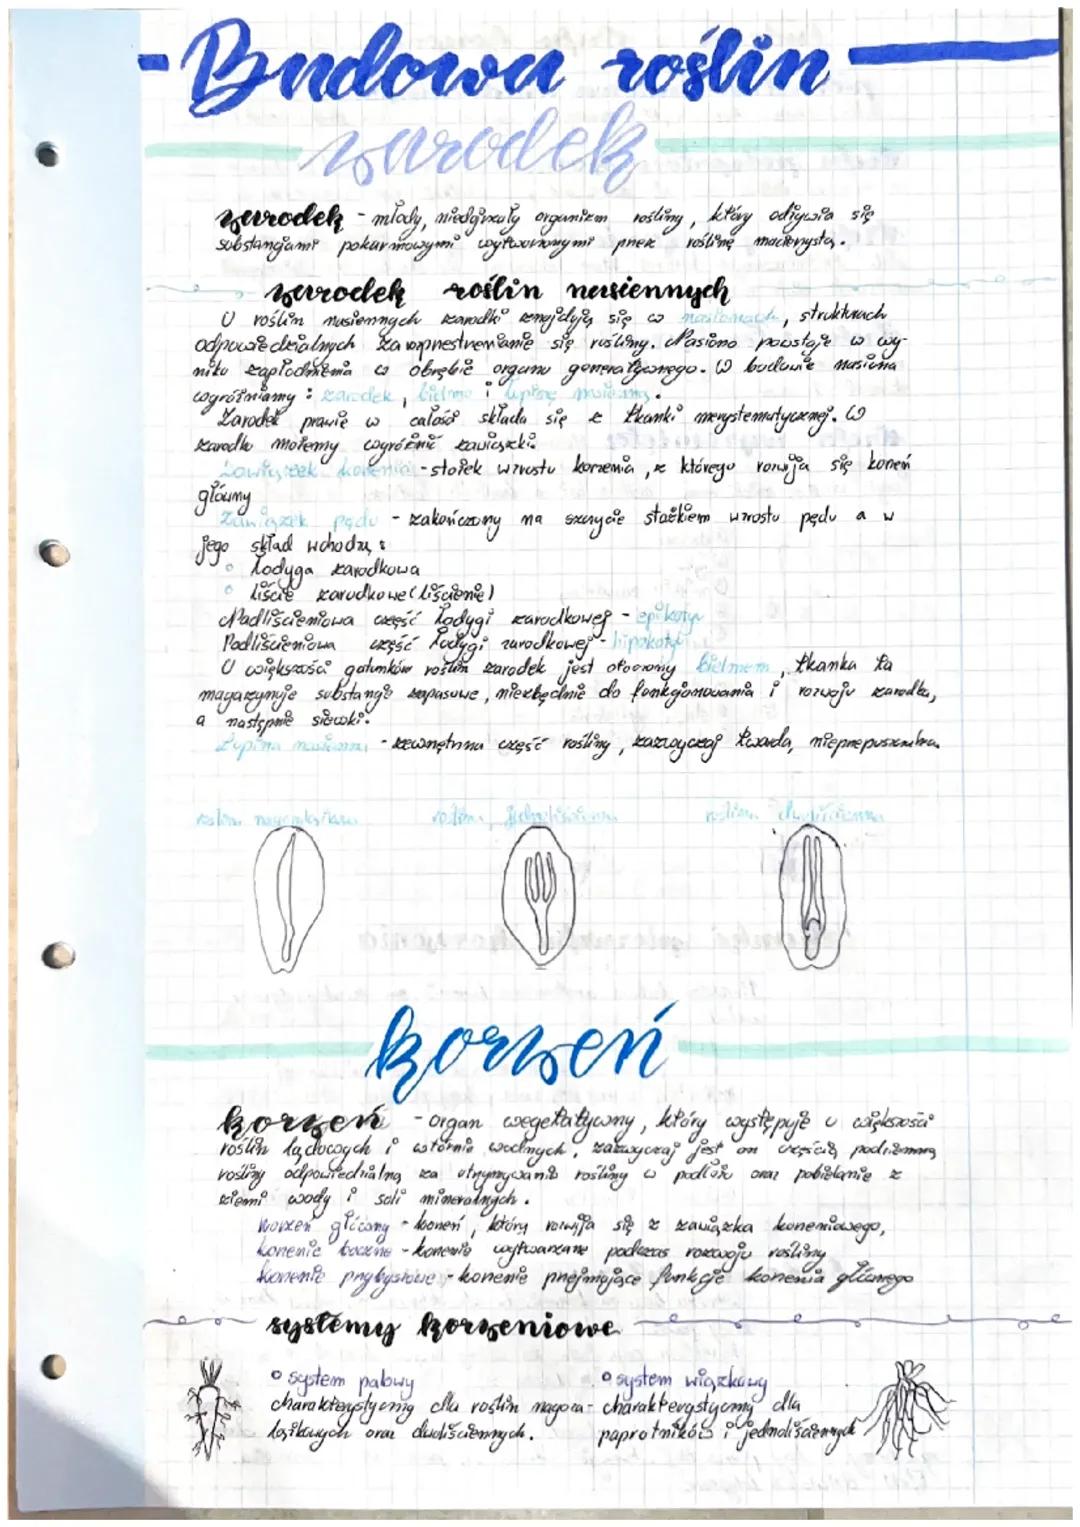 Budowa roślin
zarodek
zarodek - młody, niedojrzały organizm rośliny, który odżywia się
substancjami pokarmowymi wytworzonymi przez roślinę macierzystą.
zarodek roślin nasiennych
U roślin nasiennych zarodki znajdują się w nasionach, strukturach
odpowiedzialnych za rozprzestrzenianie się rośliny. Nasiono powstaje w wy-
niku zapłodnienia w obrębie organu generatywnego. W budowie nasiona
wyróżniamy: zarodek, bielmo i łupinę nasienną.
Zarodek prawie w całości składa się z tkanki merystematycznej. W
zarodku możemy wyróżnić zawiązki.
Zawiązek korzenia - stożek wzrostu korzenia, z którego rozwija się korzeń
główny
Zawiązek pędu - zakończony na szczycie stożkiem wzrostu pędu a w
jego skład wchodzą:
łodyga zarodkowa
liście zarodkowe (liścienie)
Nadliścieniowa część łodygi zarodkowej - epikotyl
Podliścieniowa część łodygi zarodkowej - hipokotyl
U większości gatunków roślin zarodek jest otoczony bielmem, tkanka ta
magazynuje substancje zapasowe, niezbędnie do funkcjonowania i rozwoju zarodka,
a następnie siewki.
Łupina nasienna - zewnętrzna część rośliny, zazwyczaj twarda, nieprzepuszczalna.
roślina nagozalążkowa roślina jednoliścienna roślina dwuliścienna
korzeń
korzeń - organ wegetatywny, który występuje u większości
roślin lądowych i wtórnie wodnych, zazwyczaj jest on częścią podziemną
rośliny odpowiedzialną za utrzymywanie rośliny w podłożu oraz pobieranie z
ziemi wody i soli mineralnych.
korzeń główny - korzeń, który rozwija się z zawiązka korzeniowego,
korzenie boczne - korzenie wytwarzane podczas rozwoju rośliny
korzenie przybyszowe - korzenie przejmujące funkcje korzenia głównego
systemy korzeniowe
system palowy
charakterystyczny dla roślin nagoza-
lążkowych oraz dwuliściennych.
system wiązkowy
charakterystyczny dla
paprotników i jednoliściennych